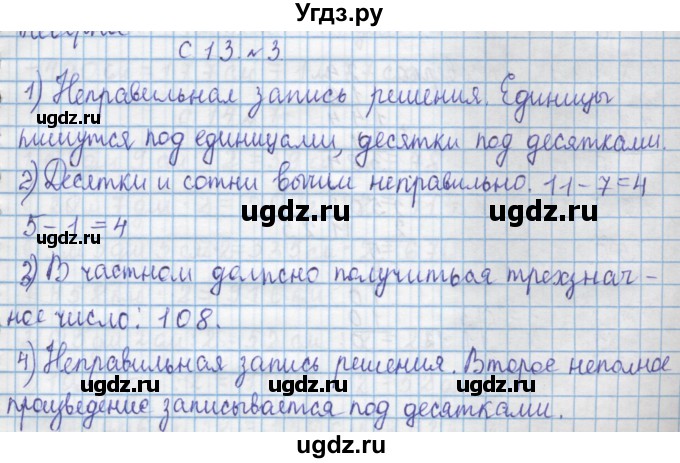 Угдз.ру
С 13. №3.
1) Неправильная запись решения. Единицы
пишутся под единицами, десятки под десятками.
ugdz.ru ugdz.ru
2) Десятки и сотни вычли неправильно. 11-7=4
ugdz.ru ugdz.ru
5-1=4
3) В частном должно получиться трехзнач-
ное число: 108.
ugdz.ru ugdz.ru
4) Неправильная запись решения. Второе неполное
ugdz.ru ugdz.ru
произведение записывается под десятками.
ugdz.ru